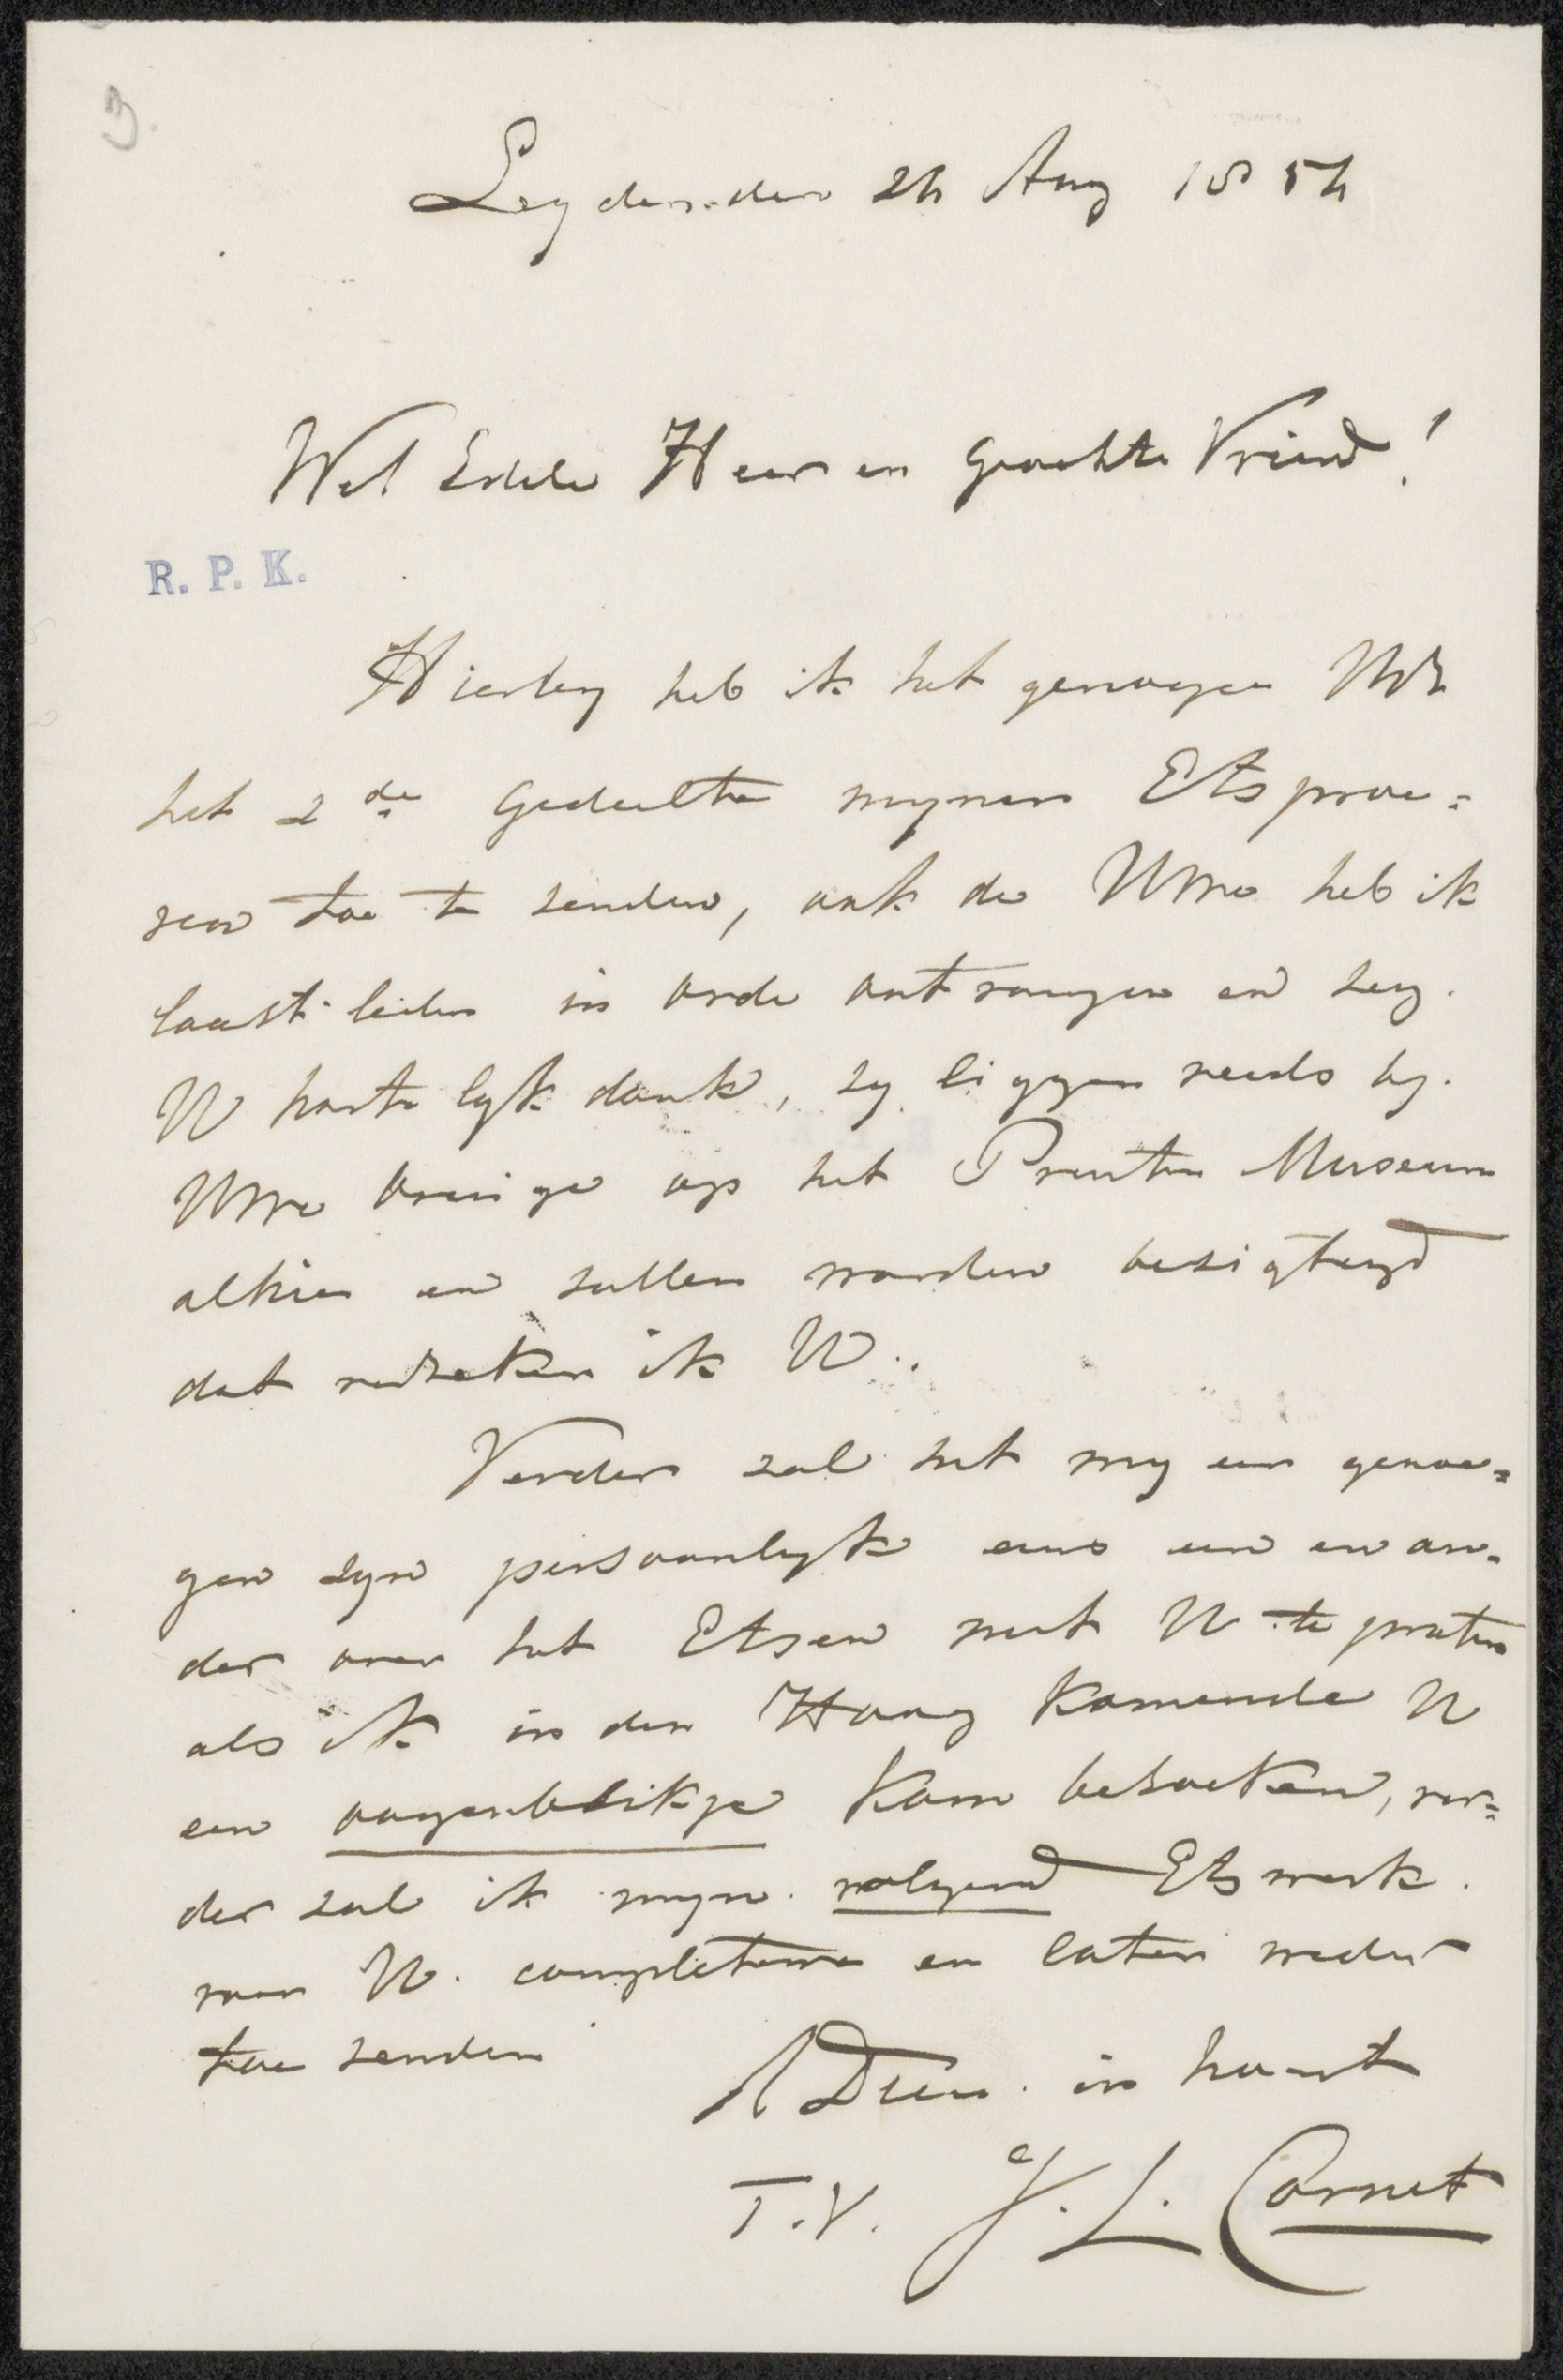 3.
Leyden den 24 Aug 1854
Wel Edele Heer en Geachte Vriend!
R. P. K.
Hierby heb ik het genoegen
het 2de Gedeelte myner Etsproe=
ven toe te zenden, ook de Uwe heb ik
laatstleden in orde ontvangen en zeg.
U hartelyk dank, zy liggen reeds by.
Uwe overige op het Prenten Museum
alhier en zullen worden bezigtigd
dat verzeker ik U..
Verder zal het my een genoe=
gen zyn persoonlyk eens een en an=
der over het Etsen met U te praten
als ik in den Haag komende U
een oogenblikje kom bezoeken, ver=
der zal ik myn. volgend Etswerk.
voor U. completeren en laten weder
toe zenden
ADieu. in haast
T.V. J. L. Cornet